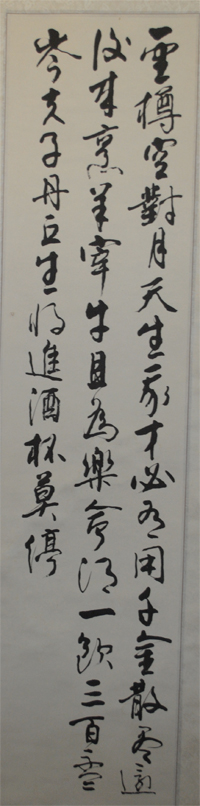 金樽空對月天生我才必有用千金散盡還
復來烹羊宰牛且為樂會須一飲三百盃
岑夫子丹丘生將進酒杯莫停